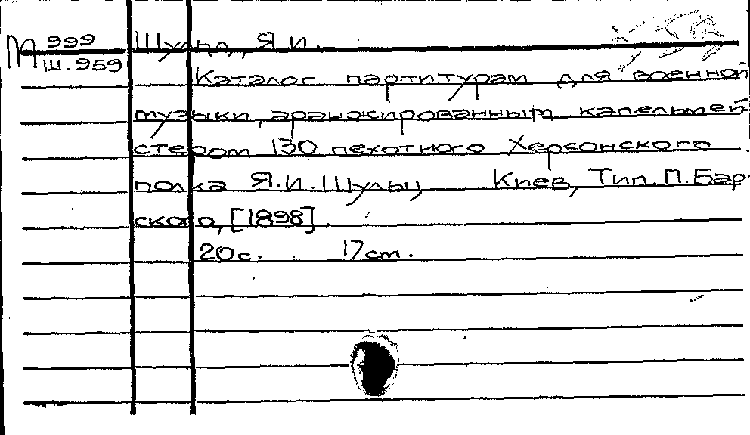 М 999
Ш.959
Шульц, Я.И.
Каталог партитурам для военной
музыки, аранжированным капельмей
стером 130 пехотного Херсонского
полка Я.И.Шульц Киев, Тип. П.Бар-
ского, [1898].
20с. 17cm.